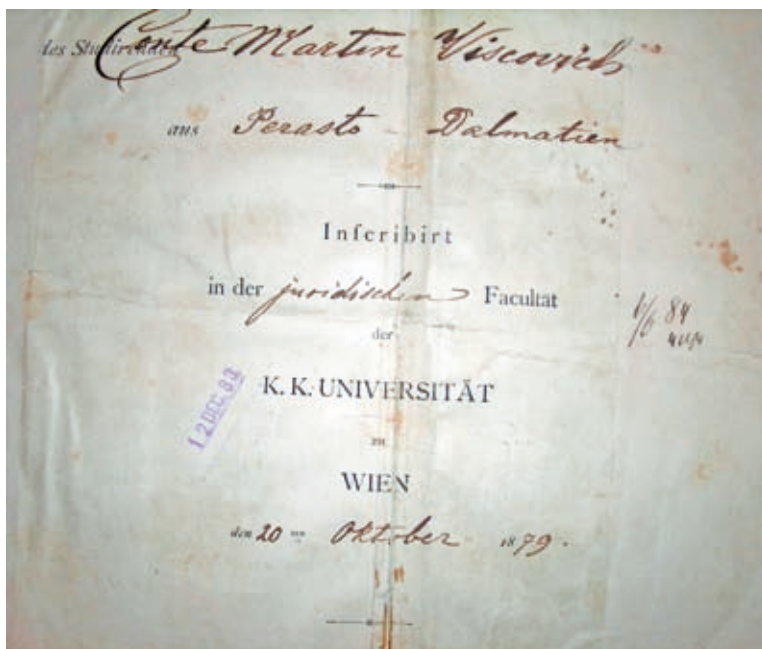 des Studirenden Conte Martin Viscovich
aus Perasto - Dalmatien
Inscribirt
in der juridischen Facultät
der
K. K. UNIVERSITÄT
zu
WIEN
den 20 ten Oktober 1879.
12 DEC. 83
1/6 84